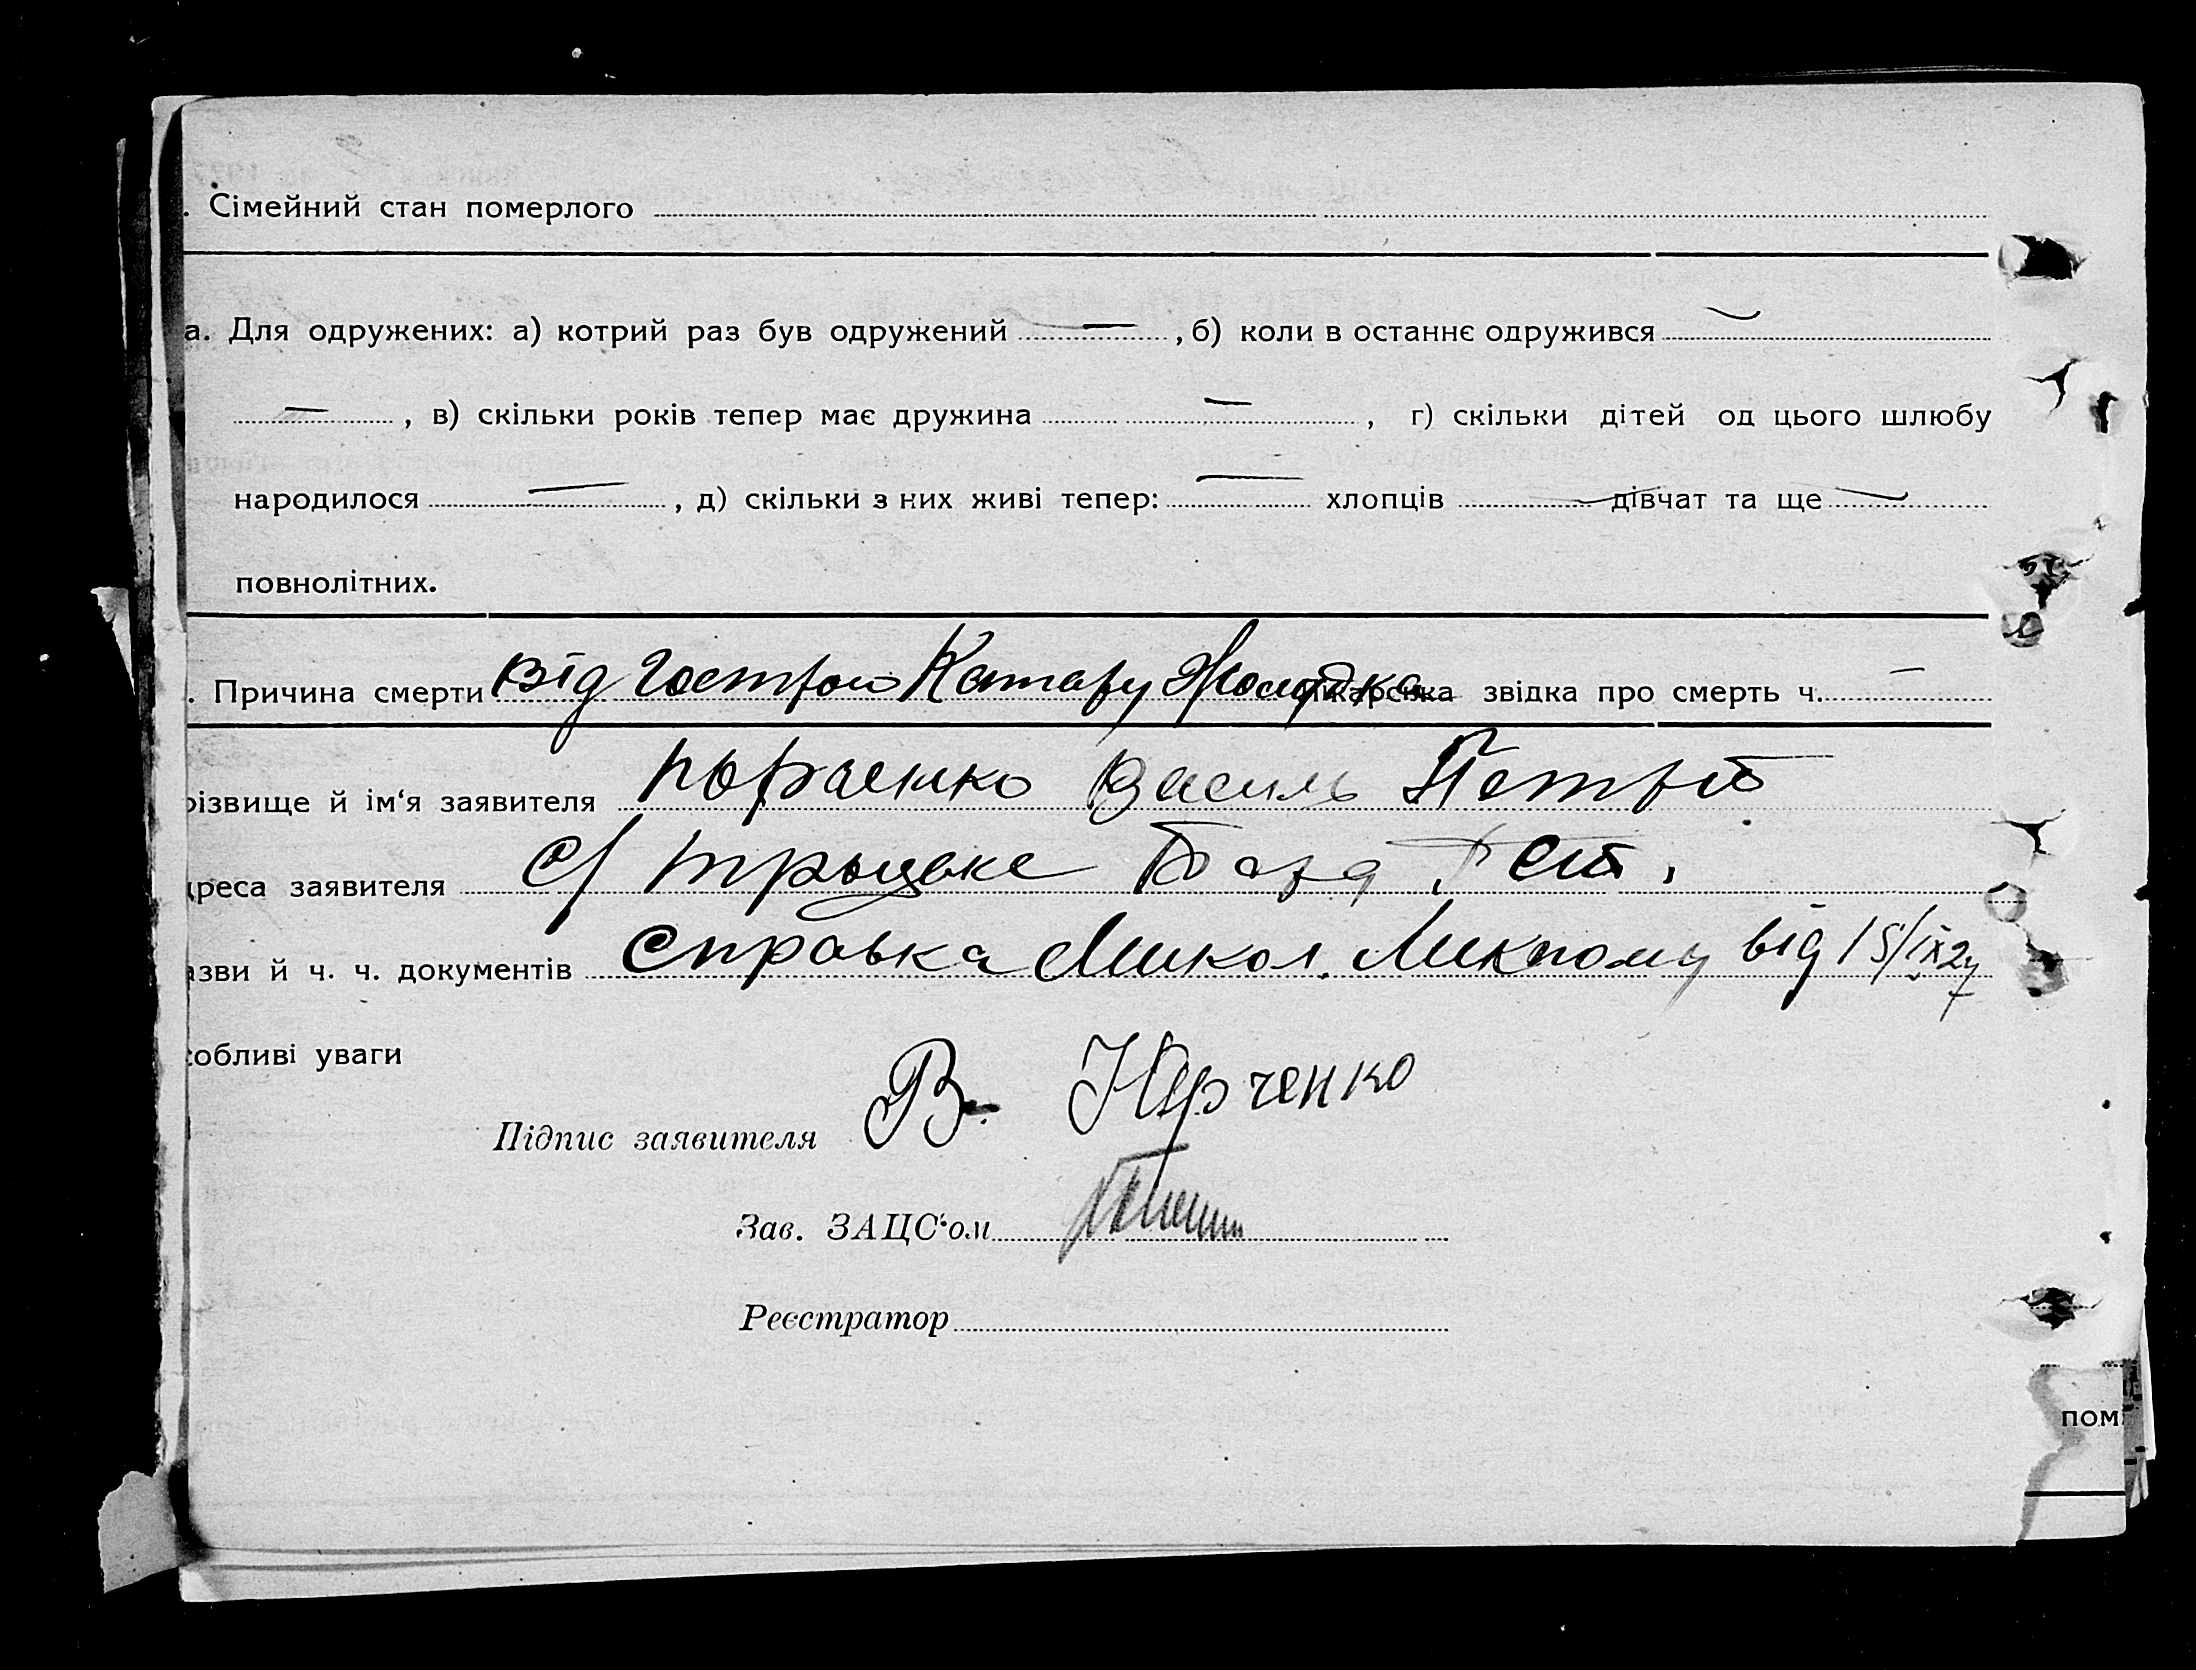 . Сімейний стан померлого
а. Для одружених: а) котрий раз був одружений — , б) коли в останнє одружився —
— , в) скільки років тепер має дружина — , г) скільки дітей од цього шлюбу
народилося — , д) скільки з них живі тепер: — хлопців — дівчат та ще —
повнолітних.
. Причина смерти від гострого Катару Жолудка лікарська звідка про смерть ч. —
різвище й ім'я заявителя Василь
дреса заявителя с/ Троцьке
азви й ч. ч. документів Справка Микол. Ликпому від 15/IX 27
собливі уваги
Підпис заявителя В. Юрченко
Зав. ЗАЦС'ом
Реєстратор
пом